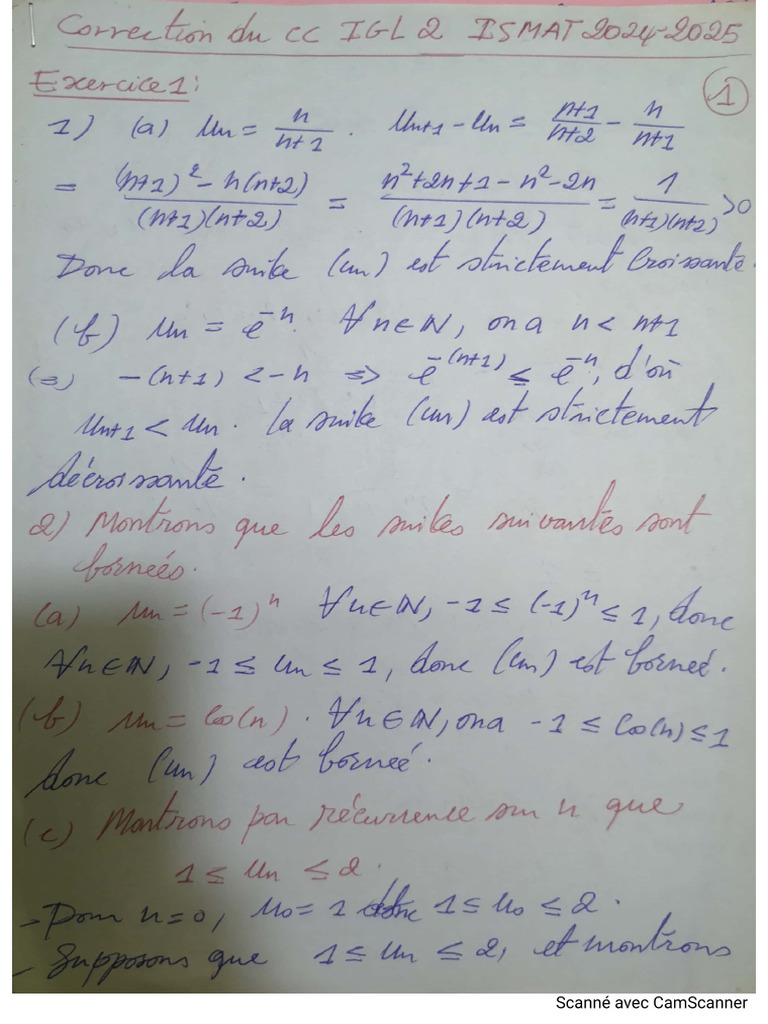 Correction du CC IGL 2 ISMAT 2024-2025
Exercice 1:
1
1) (a) Un = n/(n+1) . Un+1 - Un = (n+1)/(n+2) - n/(n+1)
= ((n+1)² - n(n+2))/((n+1)(n+2)) = (n²+2n+1-n²-2n)/((n+1)(n+2)) = 1/((n+1)(n+2)) >0
Donc la suite (un) est strictement croissante.
(b) Un = e^-n. ∀n∈ℕ, on a n < n+1
(=) -(n+1) < -n => e^-(n+1) ≤ e^-n, d'où
Un+1 < Un. La suite (un) est strictement
décroissante.
2) Montrons que les suites suivantes sont
bornées.
(a) Un = (-1)^n ∀n∈ℕ, -1 ≤ (-1)^n ≤ 1, donc
∀n∈ℕ, -1 ≤ Un ≤ 1, donc (un) est bornée.
(b) Un = Cos(n). ∀n∈ℕ, on a -1 ≤ Cos(n) ≤ 1
donc (un) est bornée.
(c) Montrons par récurrence sur n que
1 ≤ Un ≤ 2.
- Pour n=0, U0 = 1 donc 1 ≤ U0 ≤ 2.
- Supposons que 1 ≤ Un ≤ 2, et montrons
Scanné avec CamScanner